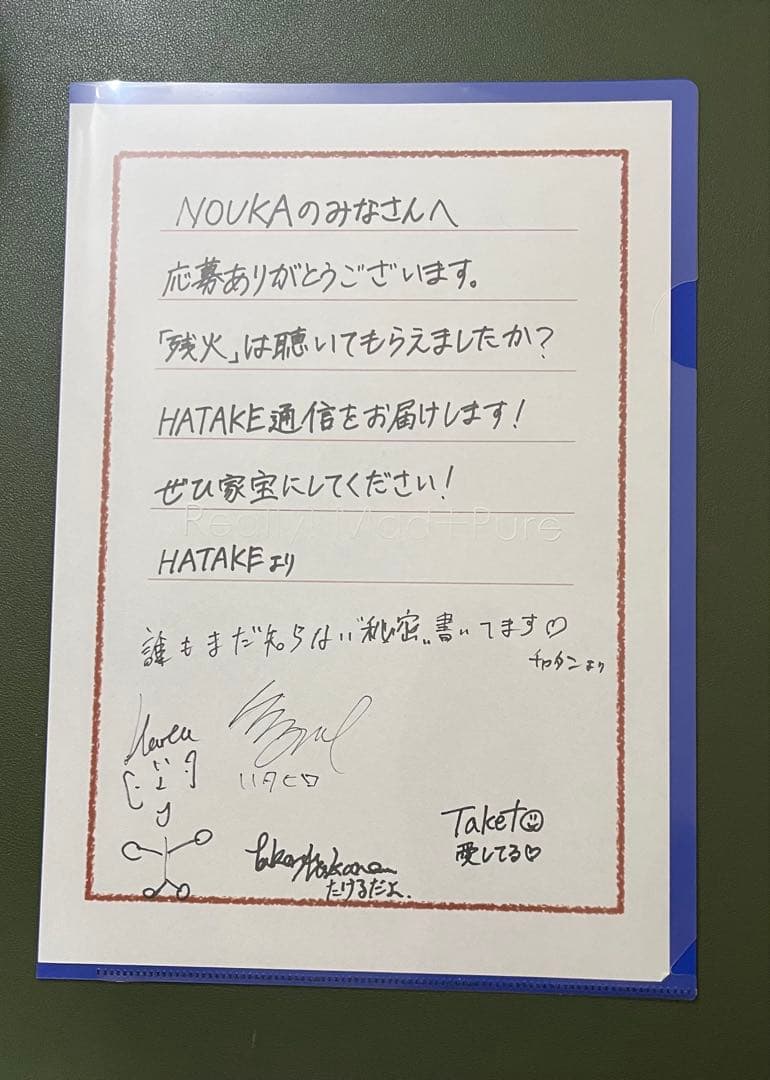 NOUKAのみなさんへ
応募ありがとうございます。
「残火」は聴いてもらえましたか?
HATAKE通信をお届けします!
ぜひ家宝にしてください!
Really Mad+Pure
HATAKEより
誰もまだ知らない"秘密"書いてます♡
チャタンより
ハタヒロ
Taketo
愛してる♡
たけるだよ.